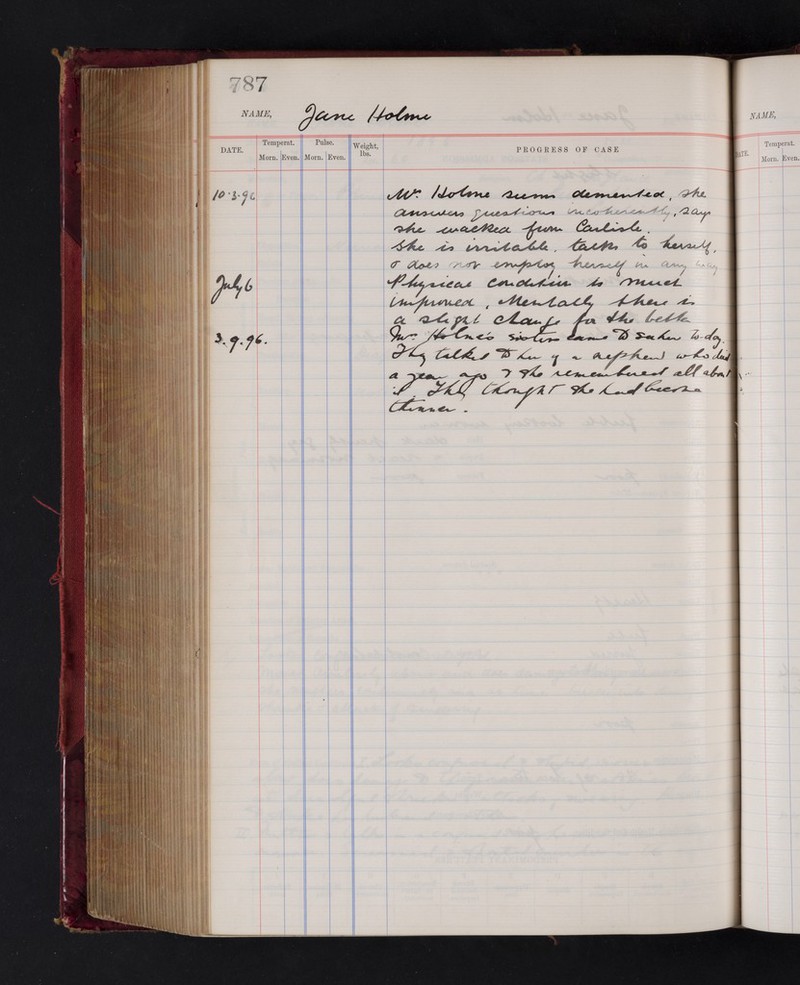 787
NAME, Jane Holme
DATE. Temperat. Morn. Even. Pulse. Morn. Even. Weight, lbs. PROGRESS OF CASE
10.3.96 Mrs Holme seems demented, she
answers questions incoherently, says
she walked from Carlisle.
She is irritable. talks to herself,
& does not employ herself in any way
July 6 Physical condition is much
improved, Mentally there is
a slight change for the better
3.9.96. Mrs Holme's sisters came to see her to-day.
They talked to her of a nephew who died
a year ago & she remembered all about
it. They thought she had become
thinner.
NAME,
DATE. Temperat.
Morn. Even.